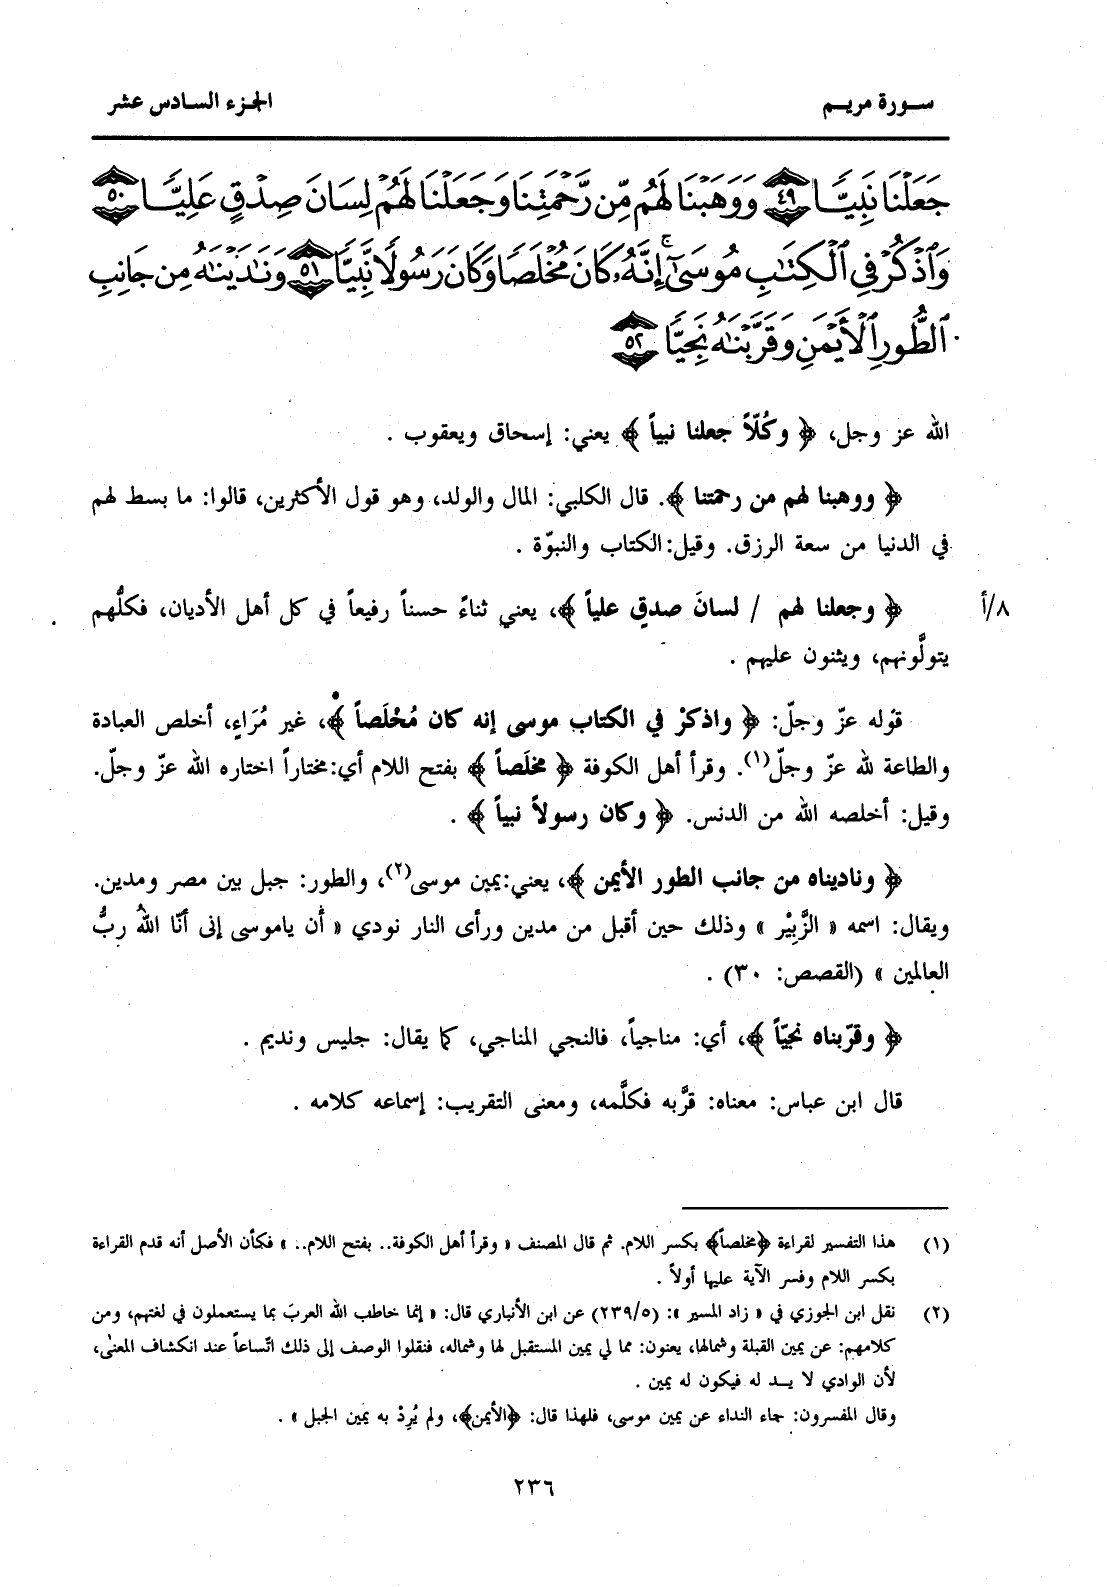 سورة مريم
الجزء السادس عشر
جَعَلْنَا نَبِيًّا ٤٩ وَوَهَبْنَا لَهُم مِّن رَّحْمَتِنَا وَجَعَلْنَا لَهُمْ لِسَانَ صِدْقٍ عَلِيًّا ٥٠
وَٱذْكُرْ فِي ٱلْكِتَٰبِ مُوسَىٰٓ إِنَّهُۥ كَانَ مُخْلَصًا وَكَانَ رَسُولًا نَّبِيًّا ٥١ وَنَٰدَيْنَٰهُ مِن جَانِبِ
ٱلطُّورِ ٱلْأَيْمَنِ وَقَرَّبْنَٰهُ نَجِيًّا ٥٢
الله عز وجل، ﴿ وكُلّاً جعلنا نبياً ﴾ يعني: إسحاق ويعقوب .
﴿ ووهبنا لهم من رحمتنا ﴾. قال الكلبي: المال والولد، وهو قول الأكثرين، قالوا: ما بسط لهم
في الدنيا من سعة الرزق. وقيل: الكتاب والنبوّة .
﴿ وجعلنا لهم / لسانَ صدقٍ علياً ﴾، يعني ثناءً حسناً رفيعاً في كل أهل الأديان، فكلُّهم
٨/أ
يتولَّونهم، ويثنون عليهم .
قوله عزّ وجلّ: ﴿ واذكرْ في الكتاب موسى إنه كان مُخْلَصاً ﴾، غير مُرَاءٍ، أخلص العبادة
والطاعة لله عزّ وجلّ(١). وقرأ أهل الكوفة ﴿ مخلَصاً ﴾ بفتح اللام أي: مختاراً اختاره الله عزّ وجلّ.
وقيل: أخلصه الله من الدنس. ﴿ وكان رسولاً نبياً ﴾ .
﴿ وناديناه من جانب الطور الأيمن ﴾، يعني: يمين موسى(٢)، والطور: جبل بين مصر ومدين.
ويقال: اسمه « الزَّبِيْر » وذلك حين أقبل من مدين ورأى النار نودي « أن ياموسى إنى أنّا اللهُ ربُّ
العالمين » (القصص: ٣٠) .
﴿ وقرّبناه نجيّاً ﴾، أي: مناجياً، فالنجي المناجي، كما يقال: جليس ونديم .
قال ابن عباس: معناه: قرَّبه فكلَّمه، ومعنى التقريب: إسماعه كلامه .
(١) هذا التفسير لقراءة ﴿مخلصاً﴾ بكسر اللام. ثم قال المصنف « وقرأ أهل الكوفة.. بفتح اللام.. » فكأن الأصل أنه قدم القراءة
بكسر اللام وفسر الآية عليها أولاً .
(٢) نقل ابن الجوزي في « زاد المسير »: (٢٣٩/٥) عن ابن الأنباري قال: « إنما خاطب الله العربَ بما يستعملون في لغتهم، ومن
كلامهم: عن يمين القبلة وشمالها، يعنون: مما لي يمين المستقبل لها وشماله، فنقلوا الوصف إلى ذلك اتّساعاً عند انكشاف المعنى،
لأن الوادي لا يــد له فيكون له يمين .
وقال المفسرون: جاء النداء عن يمين موسى، فلهذا قال: ﴿الأيمن﴾، ولم يُرِدْ به يمين الجبل » .
٢٣٦